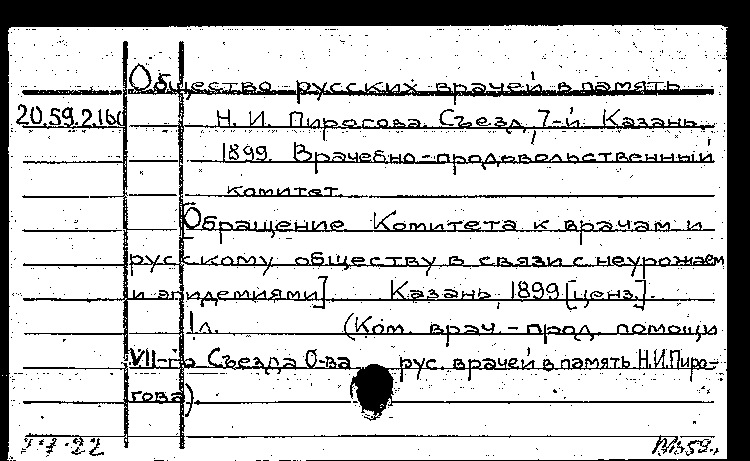 Общество русских врачей в память
20.59.2.160 Н. И. Пирогова. Съезд, 7-й. Казань.
1899. Врачебно-продовольственный
комитет.
Обращение Комитета к врачам и
русскому обществу в связи с неурожаем
и эпидемиями]. Казань, 1899 [ценз.].
1 л. (Ком. врач.-прод. помощи
VII-го Съезда О-ва рус. врачей в память Н.И.Пиро-
гова).